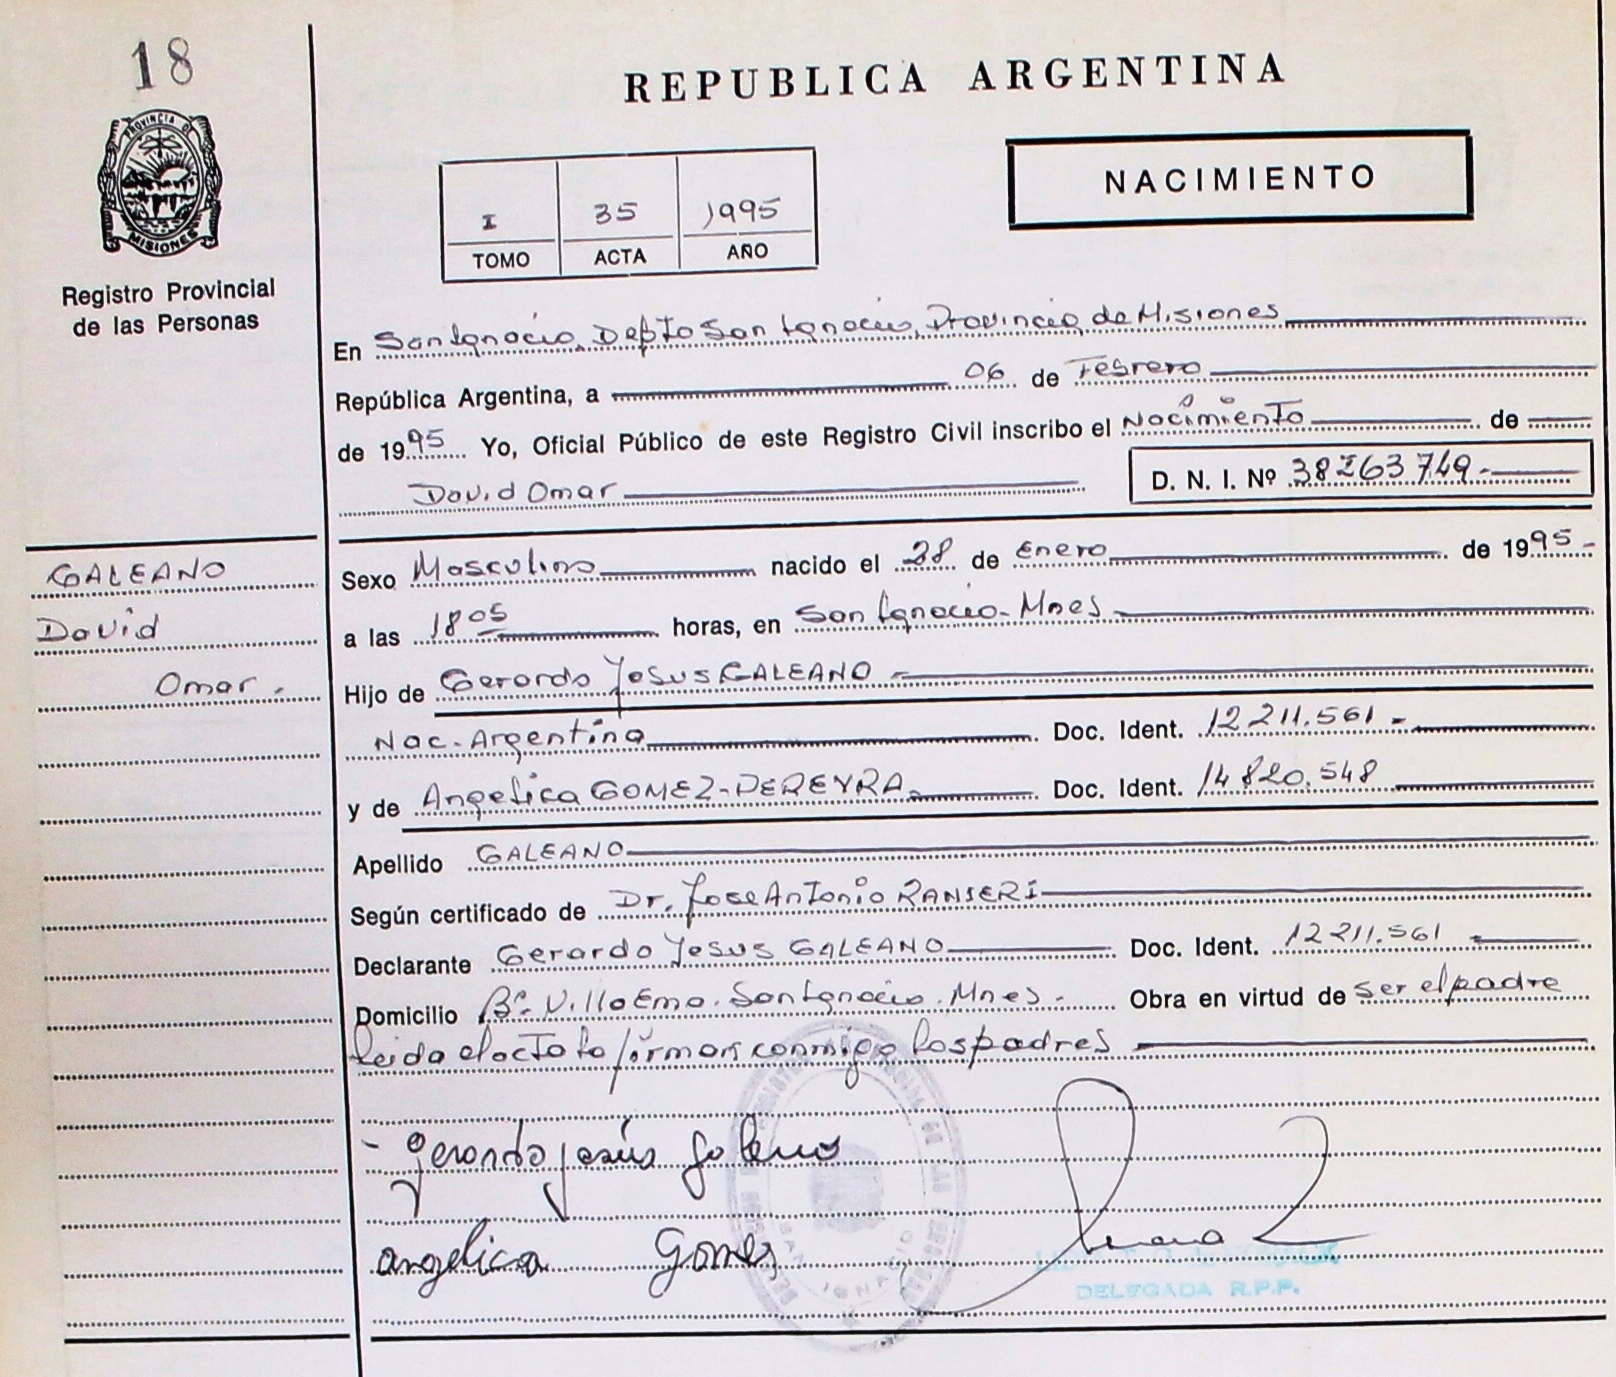 18
REPUBLICA ARGENTINA
PROVINCIA DE
MISIONES
NACIMIENTO
I 35 1995
TOMO ACTA AÑO
Registro Provincial
de las Personas
En San Ignacio, Depto San Ignacio, Provincia de Misiones
República Argentina, a 06 de Febrero
de 1995 Yo, Oficial Público de este Registro Civil inscribo el Nacimiento de
David Omar D. N. I. Nº 38263749.-
GALEANO
David
Omar.
Sexo Masculino nacido el 28 de Enero de 1995.-
a las 18 05 horas, en San Ignacio - Mnes
Hijo de Gerardo Jesus GALEANO
Nac. Argentina Doc. Ident. 12 211.561
y de Angelica GOMEZ-PEREYRA Doc. Ident. 14 820.548
Apellido GALEANO
Según certificado de Dr. Jose Antonio RANSERI
Declarante Gerardo Jesus GALEANO Doc. Ident. 12 211.561
Domicilio Bº Villa Ema. San Ignacio. Mnes. Obra en virtud de ser el padre
leida el acta la firman conmigo los padres
gerardo jesús galeano
angelica Gomes
SAN IGNACIO
DELEGADA R.P.P.